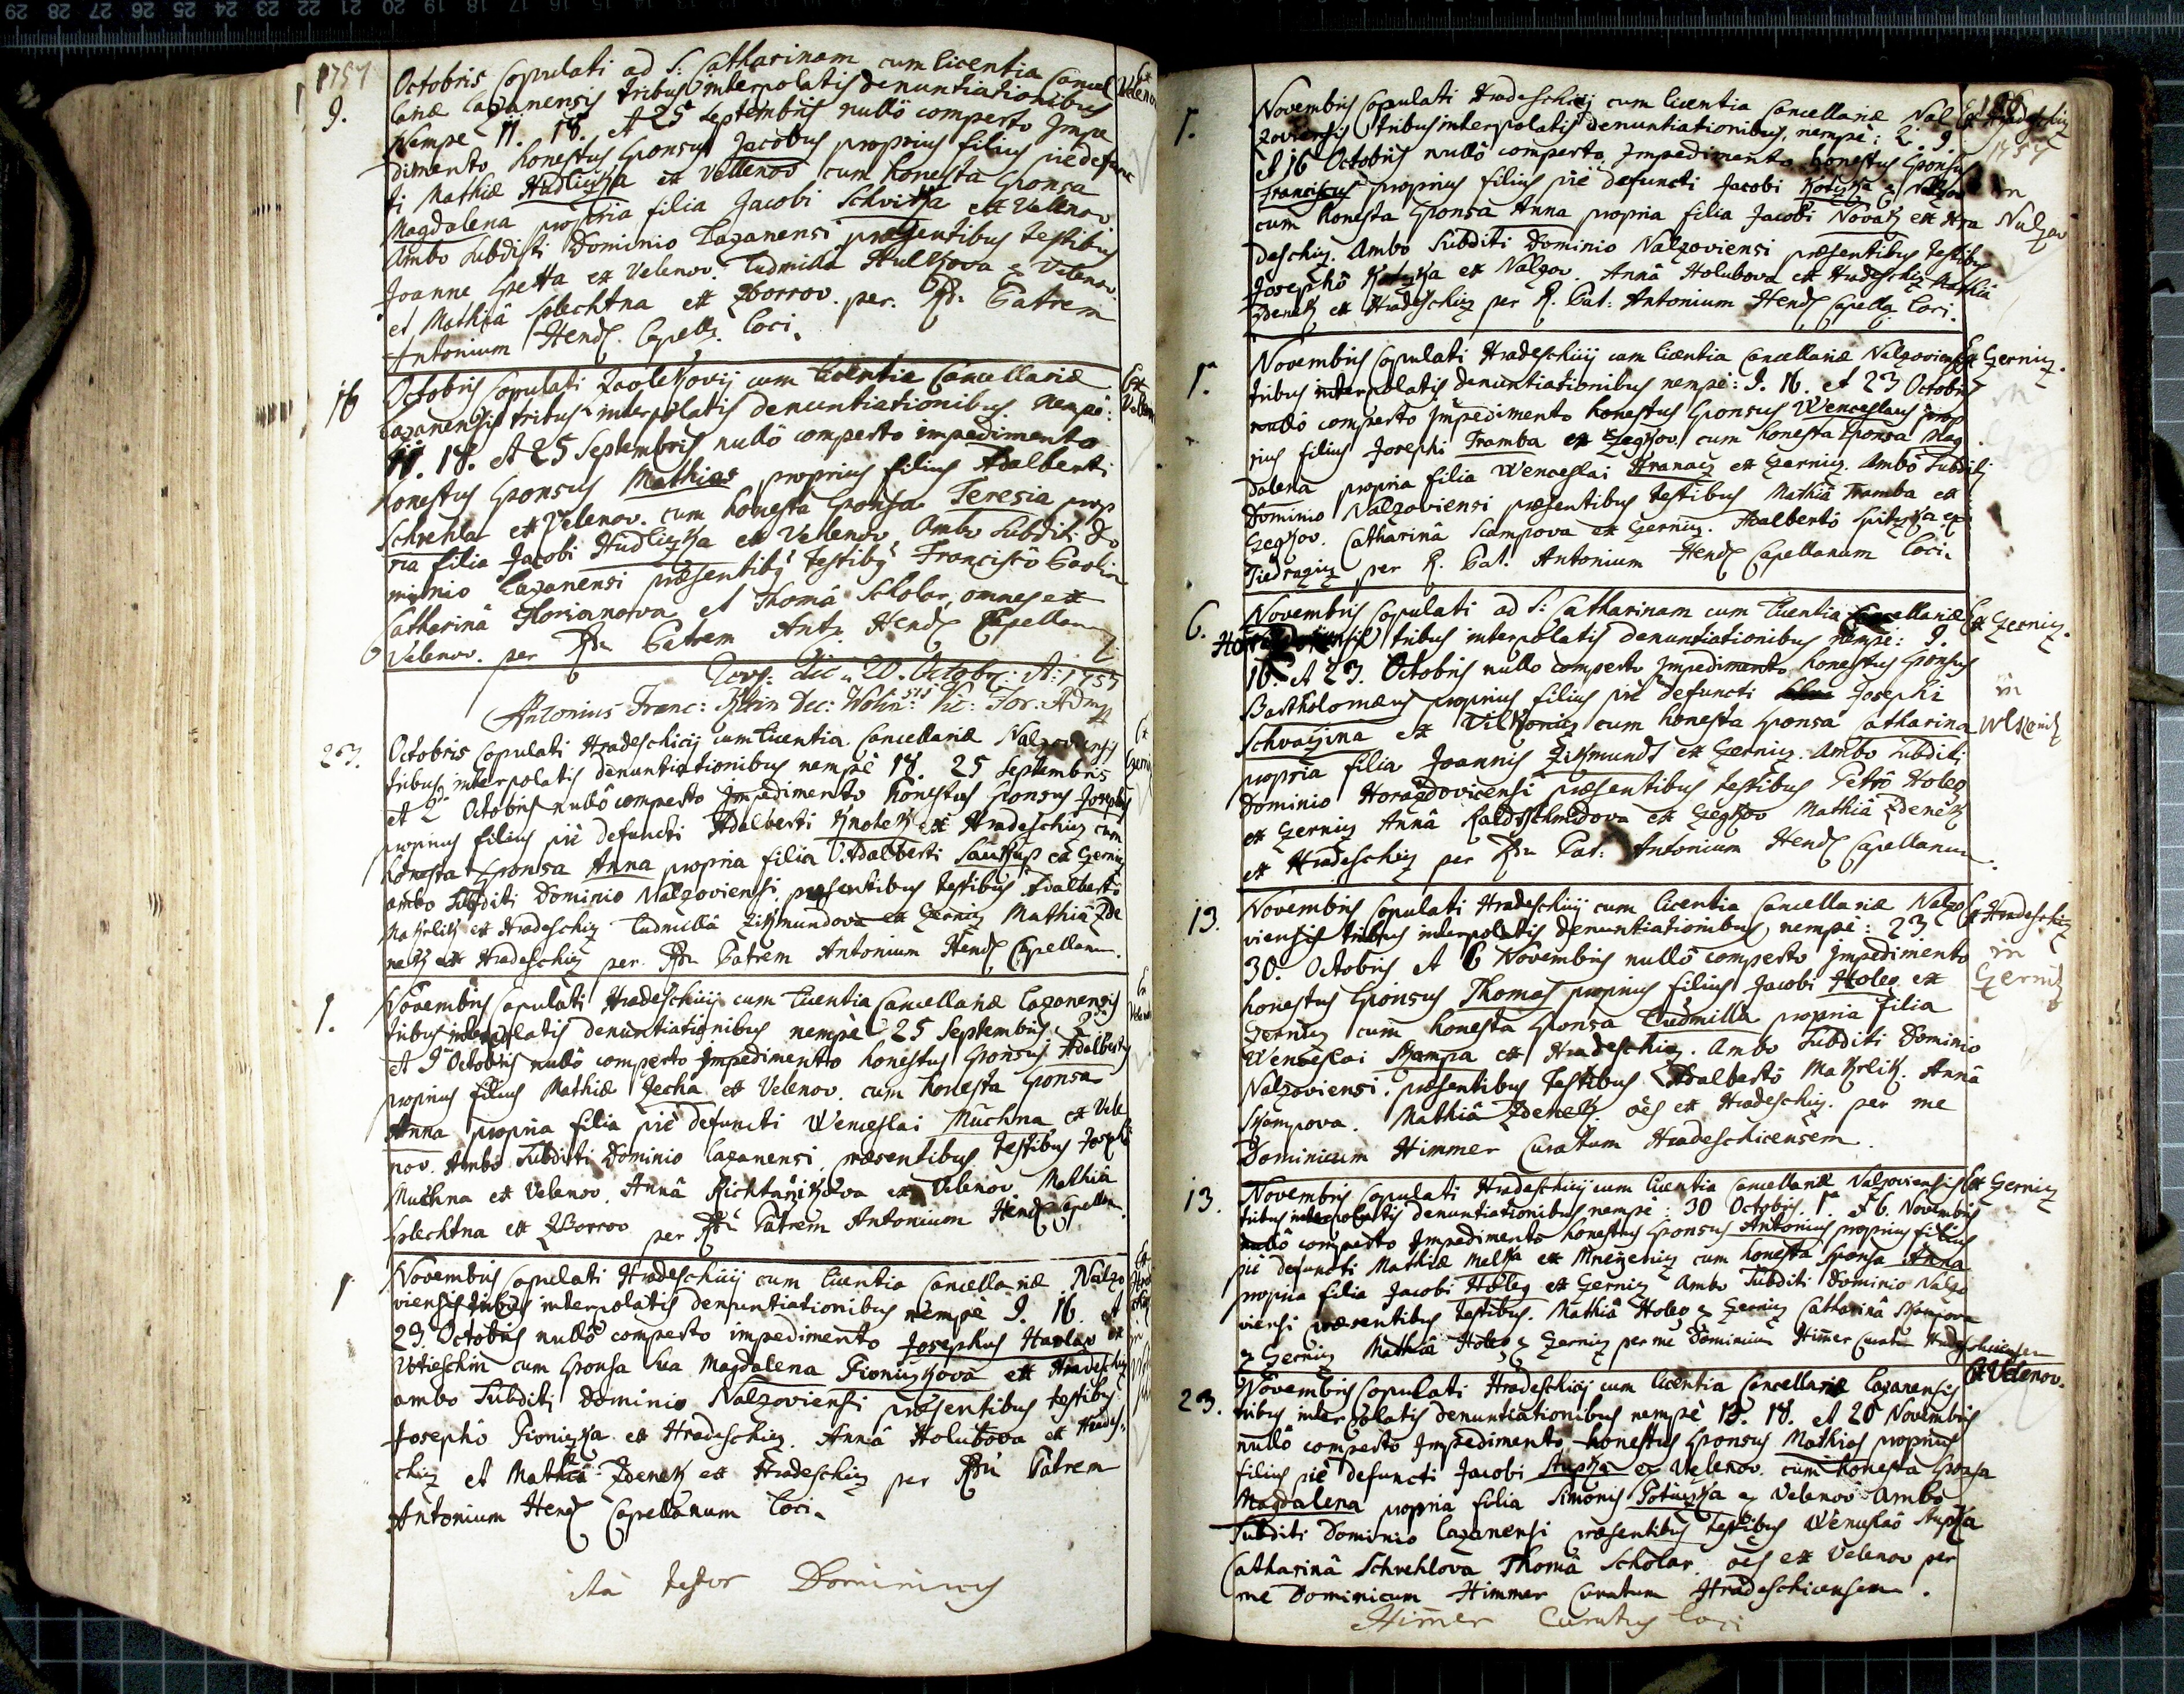 1757
9.
Octobris Copulati ad S: Catharinam cum licentia Cancel
lariæ Lazanensis tribus interpolatis denuntiationibus
Nempe 11. 18. et 25 Septembris nullô comperto Impe
dimento honestus Sponsus Jacobus proprius filius piè defunc
ti Mathiæ Hudliczka ex Vellenov cum honesta Sponsa
Magdalena propria filia Jacobi Schvitka ex Velenov.
Ambo Subditi Dominio Lazanensi præsentibus testibus
Joanne Spetta ex Velenov. Ludmilla Hulkova ex Velenov.
et Mathiâ Splechtna ex Zborrov. per Rdu Patrem
Antonium Hendl Capell. Loci.
16
Octobris Copulati Zaoletzovij cum licentia Cancellariæ
Lazanensis tribus interpolatis denuntiationibus. Nempè:
11. 18. et 25 Septembris nullô comperto impedimento
honestus Sponsus Mathias proprius filius Adalberti
Schrehla ex Velenov. cum honesta Sponsa Teresia prop
ria filia Jacobi Hudliczka ex Velenov. Ambo Subditi Do
minio Lazanensi præsentibus testibus Francisco Pavlin
Catharinâ Florianova et Thomâ Scholar, omnes ex
Velenov. per Rdu Patrem Ant. Hendl Capellan
20. Octobr: A: 1757
Antonius Franc: Dec: Wolin: Vic: For:
23.
Octobris Copulati Hradeschicij cum licentia Cancellariæ Nalzoviensis
tribus interpolatis denuntiationibus nempè 18. 25 Septembris
et 2 Octobris nullô comperto Impedimento honestus Sponsus Josephus
proprius filius piè defuncti Adalberti Knotek ex Hradeschicz cum
honesta Sponsa Anna propria filia Adalberti Saukup ex Czernicz
ambo Subditi Dominio Nalzoviensi præsentibus testibus Adalbertô
Makrlik ex Hradeschicz Ludmillâ Zikmundova ex Czernicz Mathiâ Zde
nek ex Hradeschicz per Rdu Patrem Antonium Hendl Capellan.
1.
Novembris Copulati Hradeschicij cum licentia Cancellariæ Lazanensis
tribus interpolatis denuntiationibus nempè 25 Septembris 2
et 9 Octobris nullô comperto Impedimento honestus Sponsus Adalbertus
proprius filius Mathiæ Zecha ex Velenov. cum honesta Sponsa
Anna propria filia piè defuncti Wenceslai Muchna ex Vele
nov. Ambo Subditi Dominio Lazanensi, præsentibus testibus Josepho
Muchna ex Velenov. Annâ Richtarzikova ex Velenov Mathiâ
Splechtna ex Zborrov per Rdu Patrem Antonium Hendl Capellan.
1
Novembris Copulati Hradeschicij cum licentia Cancellariæ Nalzo
viensis tribus interpolatis denuntiationibus nempè 9. 16. et
23 Octobris nullô comperto impedimento Josephus Havlav ex
Votieschin cum Sponsa sua Magdalena Pioniczkova ex Hradeschicz
ambo Subditi Dominio Nalzoviensi præsentibus testibus
Josephô Pioniczka ex Hradeschicz. Annâ Holubova ex Hrades-
chicz et Mathiâ Zdenek ex Hradeschicz per Rdu Patrem
Antonium Hendl Capellanum Loci.
ità testor Dominicus
1757
1.
Novembris Copulati Hradeschicij cum licentia Cancellariæ Nal
zoviensis tribus interpolatis denuntiationibus, nempè: 2. 9.
et 16 Octobris nullô comperto Impedimento honestus Sponsus
Franciscus proprius filius piè defuncti Jacobi Kotyzka ex Nalzov
cum honesta Sponsa Anna propria filia Jacobi Novak ex Hra
deschicz. Ambo Subditi Dominio Nalzoviensi præsentibus testibus
Josephô Kotyzka ex Nalzov. Annâ Holubova ex Hradeschicz Mathiâ
Zdenek ex Hradeschicz per R. Pat: Antonium Hendl Capella. Loci.
Ex Hradeschicz
in
Nalzov
1.
Novembris Copulati Hradeschicij cum licentia Cancellariæ Nalzoviensis
tribus interpolatis denuntiationibus nempè: 9. 16. et 23 Octobris
nullô comperto Impedimento honestus Sponsus Wenceslaus prop
rius filius Josephi Tramba ex Czegkov. cum honesta Sponsa Mag
dalena propria filia Wenceslai Hranacz ex Czernicz. Ambo Subditi
Dominio Nalzoviensi præsentibus testibus Mathiâ Tramba ex
Czegkov. Catharinâ Scampova ex Czernicz. Adalbertô Spitzka ex
Tiedrazicz per R. Pat. Antonium Hendl Capellanum Loci.
Ex Czernicz.
6.
Novembris Copulati ad S: Catharinam cum licentia Cancellariæ
tribus interpolatis denuntiationibus nempè: 9.
16. et 23. Octobris nullo comperto Impedimento honestus Sponsus
Bartholomæus proprius filius piè defuncti Josephi
Schvatzina ex Vilkonicz cum honesta Sponsa Catharina
propria filia Joannis Zikmundt ex Czernicz. Ambo Subditi
Dominio Horazdovicensi præsentibus testibus Petrô Holeg
ex Czernicz Annâ Kaldschmidova ex Czegkov Mathiâ Zdenek
ex Hradeschicz per Rdu Pat: Antonium Hendl Capellanum.
Ex Czernicz.
in
Wlkonicz
13.
Novembris Copulati Hradeschicij cum licentia Cancellariæ Nalzo
viensis tribus interpolatis denuntiationibus, nempè: 23
30. Octobris et 6 Novembris nullô comperto Impedimento
honestus Sponsus Thomas proprius filius Jacobi Holeg ex
Czernicz cum honesta Sponsa Ludmilla propria filia
Wenceslai Skampa ex Hradeschicz. Ambo Subditi Dominio
Nalzoviensi. præsentibus testibus Adalbertô Makrlik. Annâ
Skampova. Mathiâ Zdenek. oes ex Hradeschicz. per me
Dominicum Himmer Curatum Hradeschicensem.
Ex Hradeschicz
in
Czernicz
13.
Novembris Copulati Hradeschicij cum licentia Cancellariæ Nalzoviensis
tribus interpolatis denuntiationibus nempè: 30 Octobris. 1. et 6. Novembris
nullô comperto Impedimento honestus Sponsus Antonius proprius filius
piè defuncti Mathiæ Melka ex Mneyenicz cum honesta Sponsa Anna
propria filia Jacobi Holeg ex Czernicz Ambo Subditi Dominio Nalzo
viensi præsentibus testibus. Mathiâ Holeg ex Czernicz Catharinâ Skampova
ex Czernicz Mathiâ Holeg ex Czernicz per me Dominicum Himer Curatum Hradeschicensem
Ex Czernicz
23.
Novembris Copulati Hradeschicij cum licentia Cancellariæ Lazanensis
tribus interpolatis denuntiationibus nempè 13. 18. et 20 Novembris
nullô comperto Impedimento honestus Sponsus Mathias proprius
filius piè defuncti Jacobi Stupka ex Velenov. cum honesta Sponsa
Magdalena propria filia Simonis Potuczka ex Velenov Ambo
Subditi Dominio Lazanensi præsentibus testibus Wenceslaô Stupka
Catharinâ Schrehlova Thomâ Scholar. oes ex Velenov per
me Dominicum Himmer Curatum Hradeschicensem.
Ex Velenov.
Himer Curatus Loci